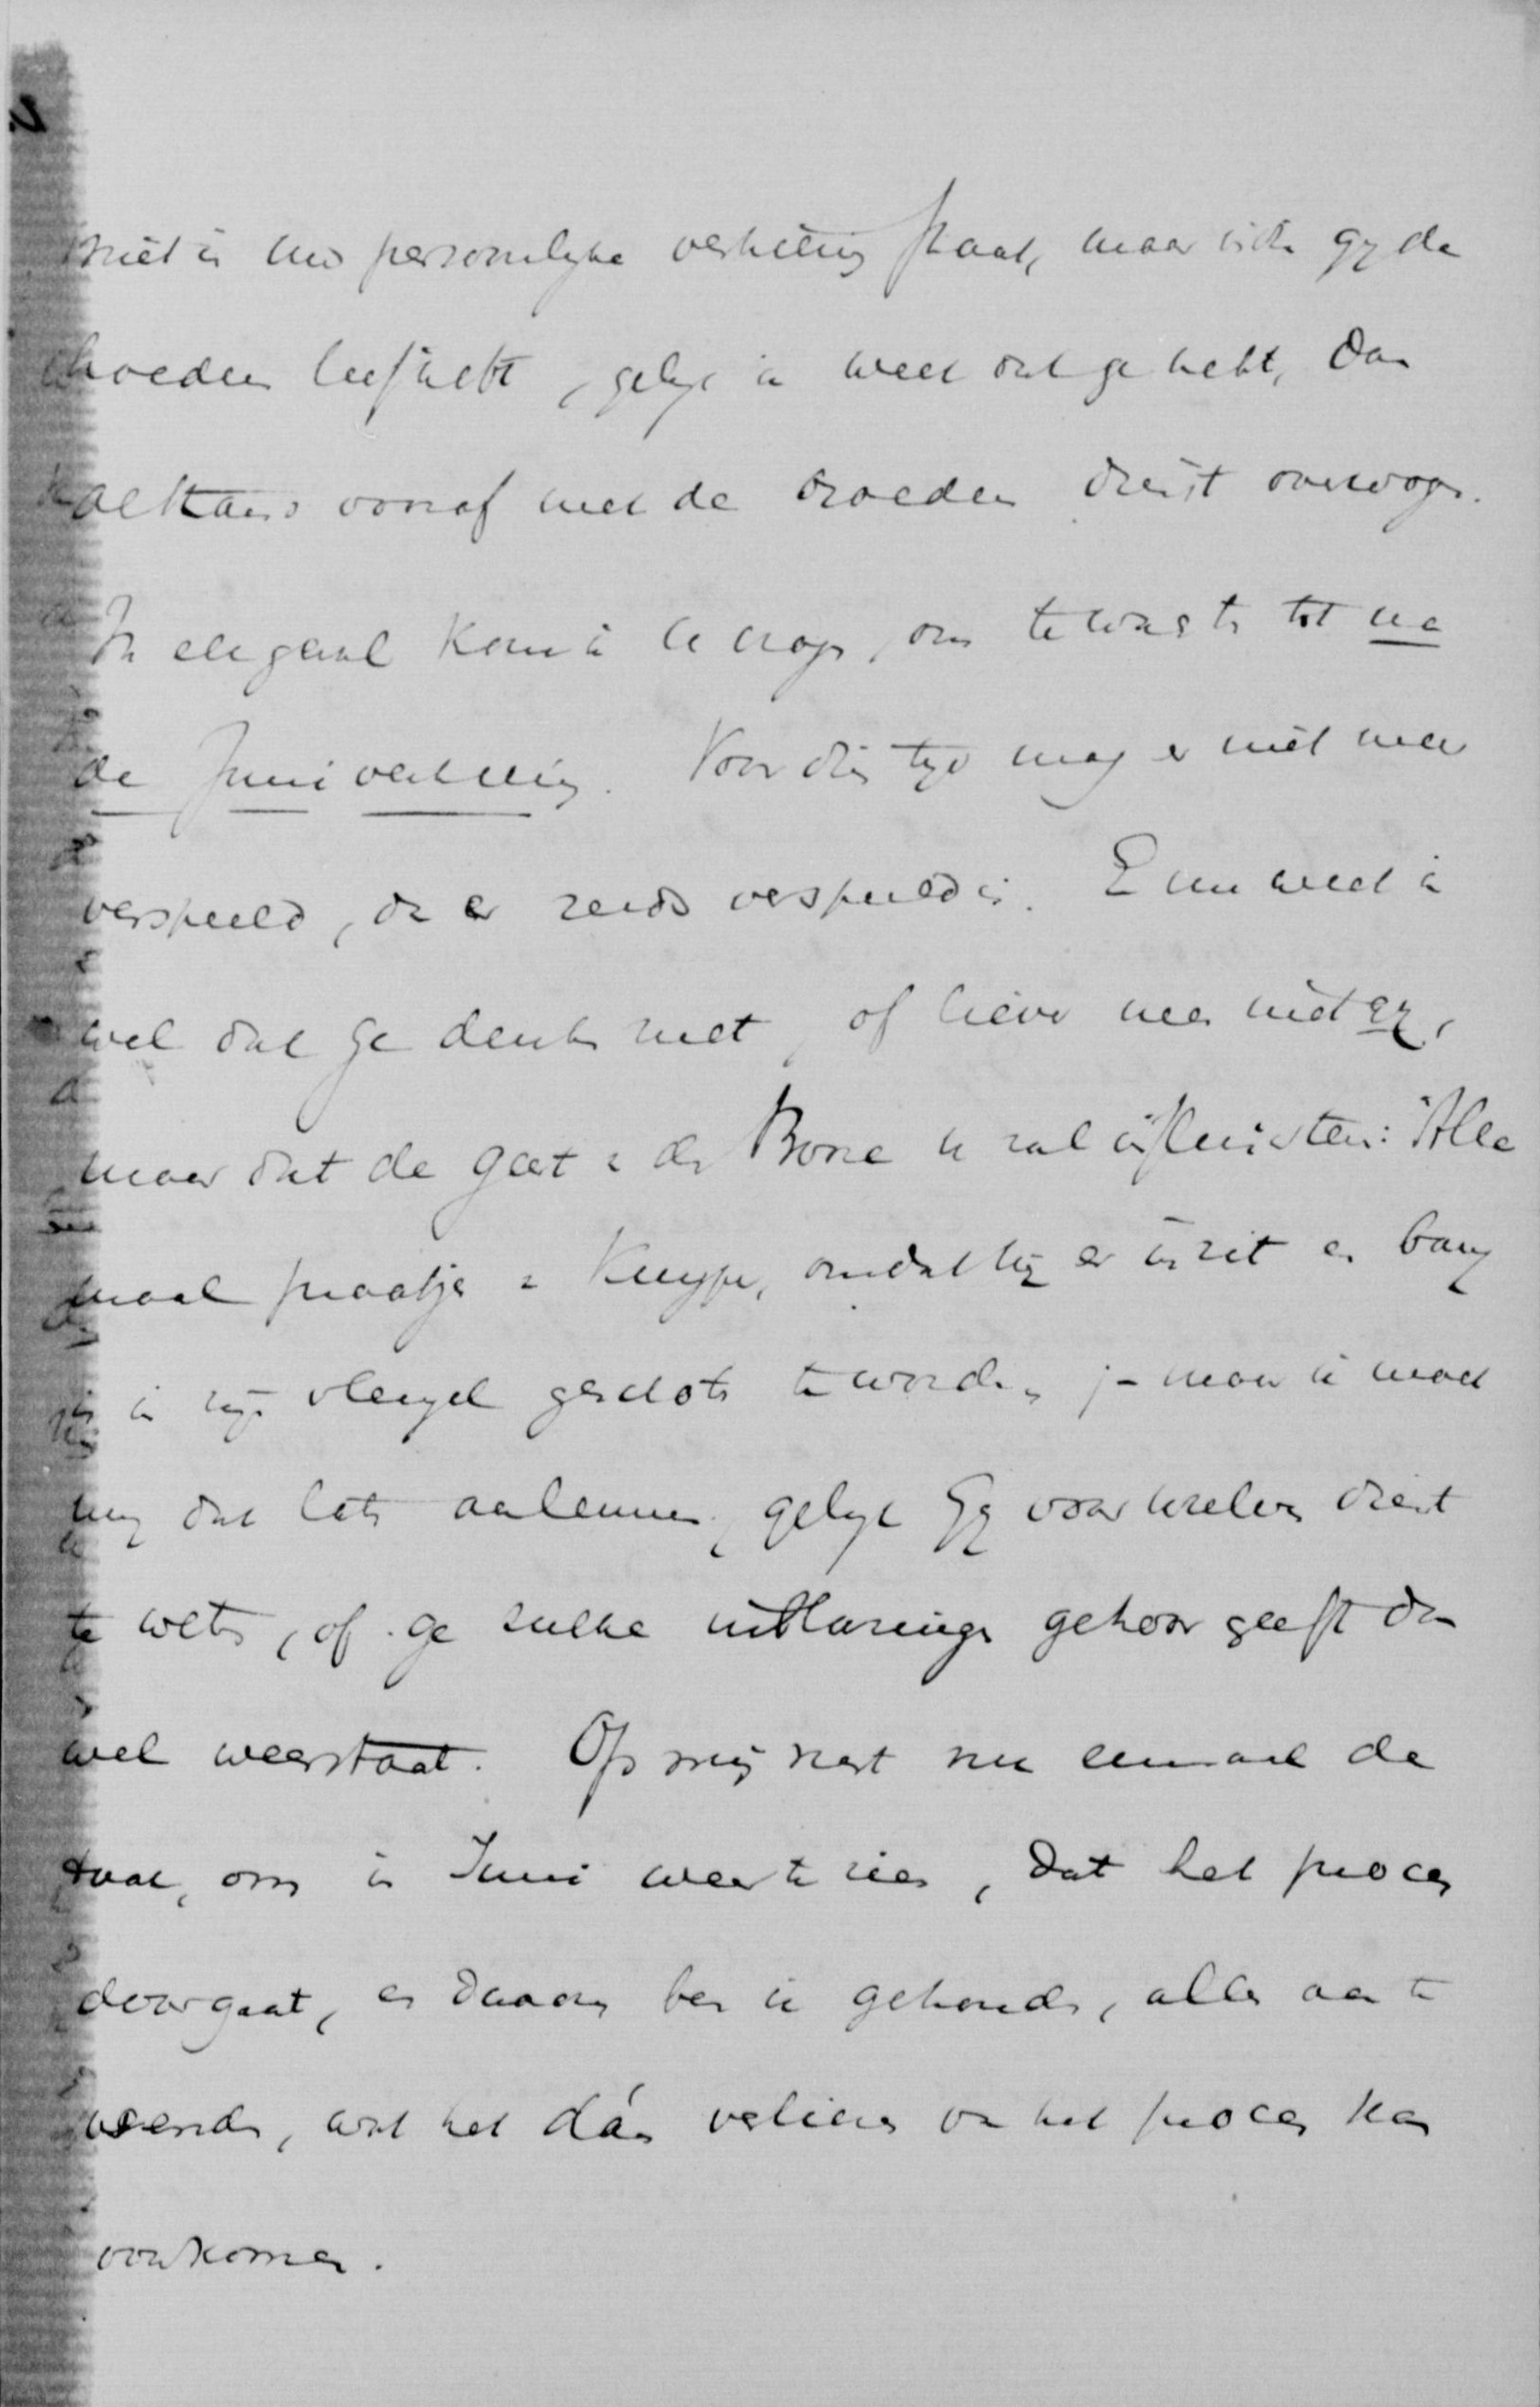 niet in uw persoonlijke verkiezing staat, maar indien gij de
broeders liefhebt, gelijk ik weet dat ge hebt, dan
althans vooraf met de broeders dient overwogen.
In elk geval kom ik U vragen, om te wachten tot na
de Juni verkiezing. Voor dien tijd mag er niet meer
verspeeld, dan er reeds verspeeld is. En nu weet ik
wel dat ge denkt niet, of liever neen niet gij,
maar dat de geest in den Booze u zal influisteren: "Alle
maal praatjes van Kuyper, omdat hij er in zit en bang
is in zijn vleugel geschoten te worden," – maar ik moet
mij dat laten aanleunen, gelijk Gij voor uzelven dient
te weten, of ge zulke inblazingen gehoor geeft dan
wel weerstaat. Op mij rust nu eenmaal de
taak, om in Juni weer te zien, dat het proces
doorgaat, en daarom ben ik gehouden, alles aan te
wenden, wat het dán verliezen van het proces kan
voorkomen.